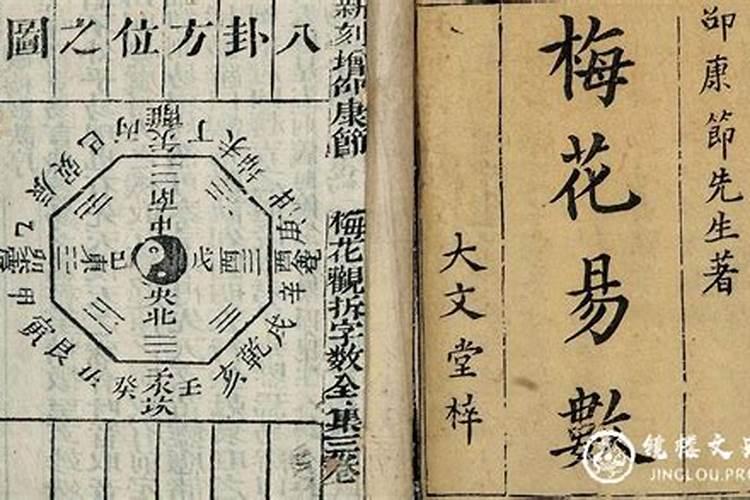 八卦方位之圖
離
巳 丙 午 丁 未
巽 坤
辰 申
南
乙 庚
震 卯 東 己 中 戊 酉 兌
甲 央 辛
北
寅 戌
艮 乾
丑 癸 子 壬 亥
坎
新刻增卲康節
梅花觀拆字數全集三卷
卲康節先生著
梅花易數
大文堂梓
鏡楼文
JINGLOU.PR